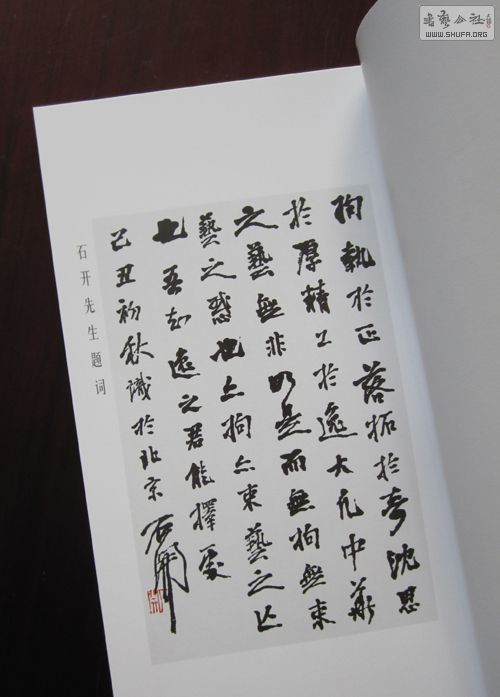 書藝公社
WWW.SHUFA.ORG
拘執於正落拓於奇沈思
於厚精工於逸大凡中華
之藝無非如是而無拘無束
藝之惑也亦拘亦束藝之
也吾知之君能擇處
己丑初秋識於北京石開
石开先生题词